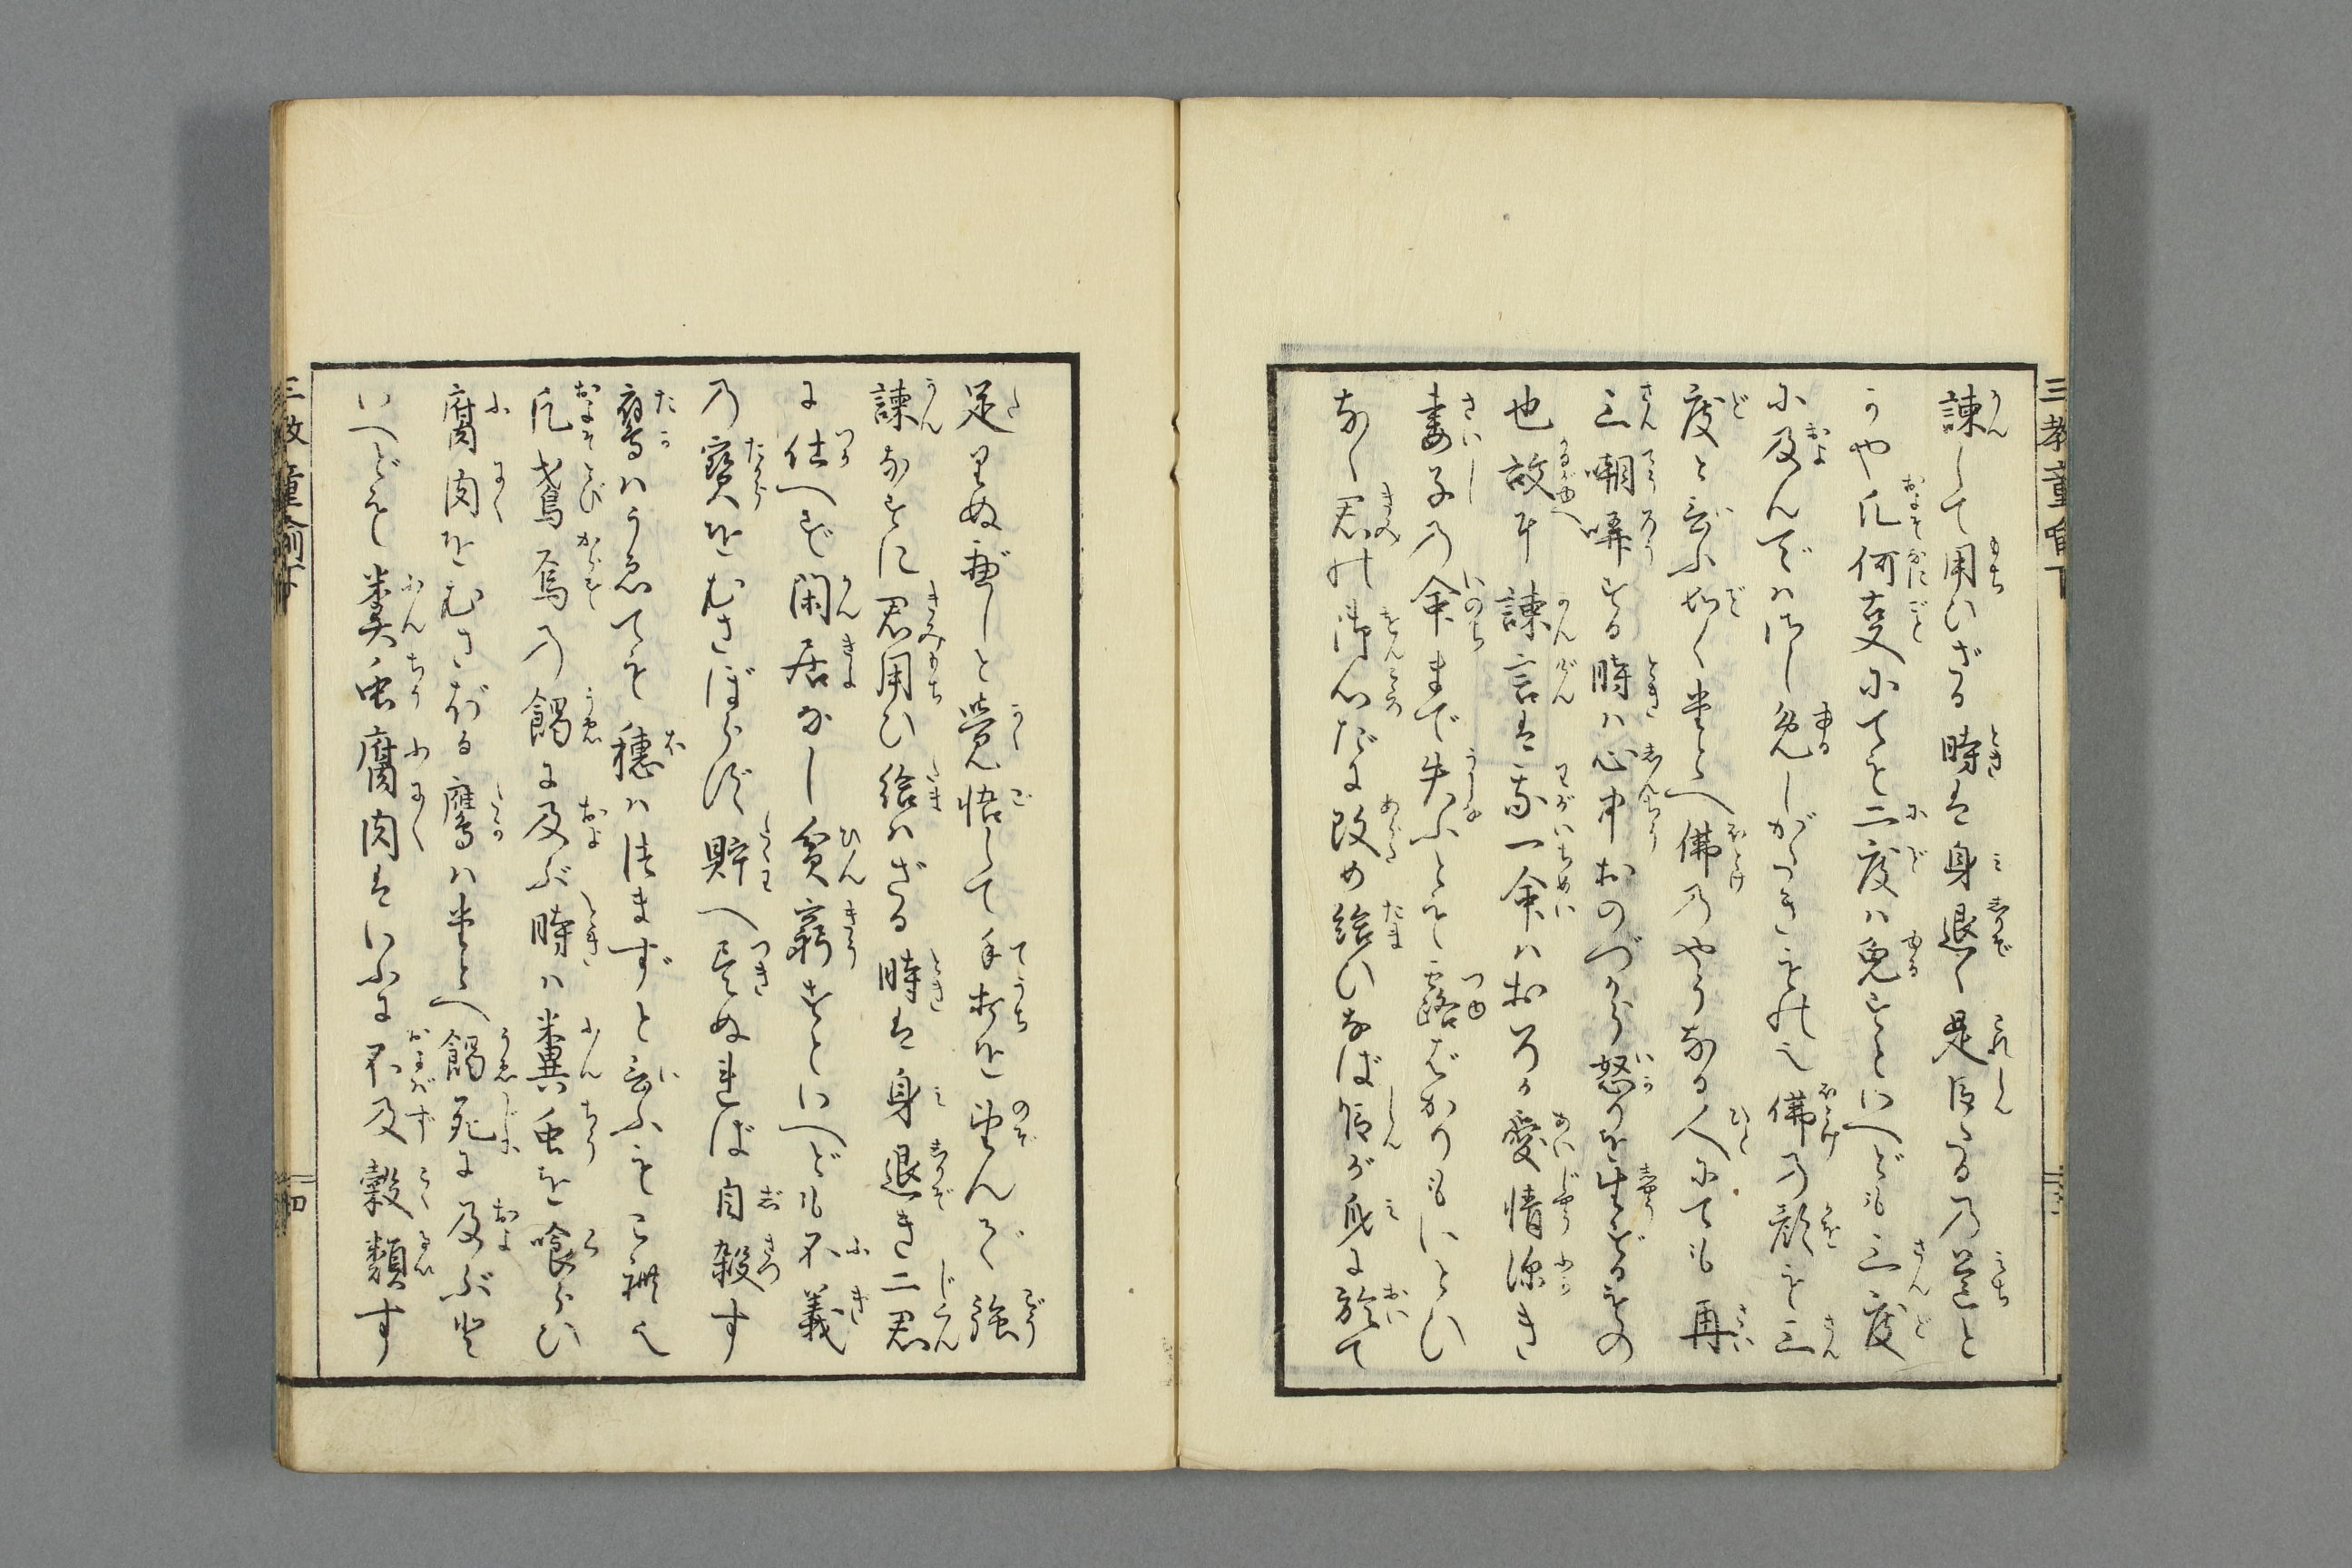 諫して用いざる時は身退く是臣たるの道と
かや凡何事にても二度は免すといへども三度
に及んでは赦し免しがたきもの也佛の顔も三
度と云ふ如くたとへ佛のやうなる人にても再
三嘲哢する時は心中おのづから怒りを生ずるもの
也故に諫言は我一命はおろか愛情深き
妻子の命まで失ふとも露ばかりもいとい
なく君の御心だに改め給いなば臣が身に於て
足りぬべしと覚悟して手打を望んで強
諫なすに君用ひ給はざる時は身退き二君
に仕へず閑居なし貧窮すといへども不義
の寳をむさぼらず貯へ尽ぬれば自殺す
鷹はうゑても穂はつまずと云ふもこれ也
凡鳶烏の餲に及ぶ時は糞虫を喰らひ
腐肉をむさぼる鷹はたとへ餲死に及ぶと
いへども糞虫腐肉はいふに不及穀類す
三教童喩下
三教童喩下
四